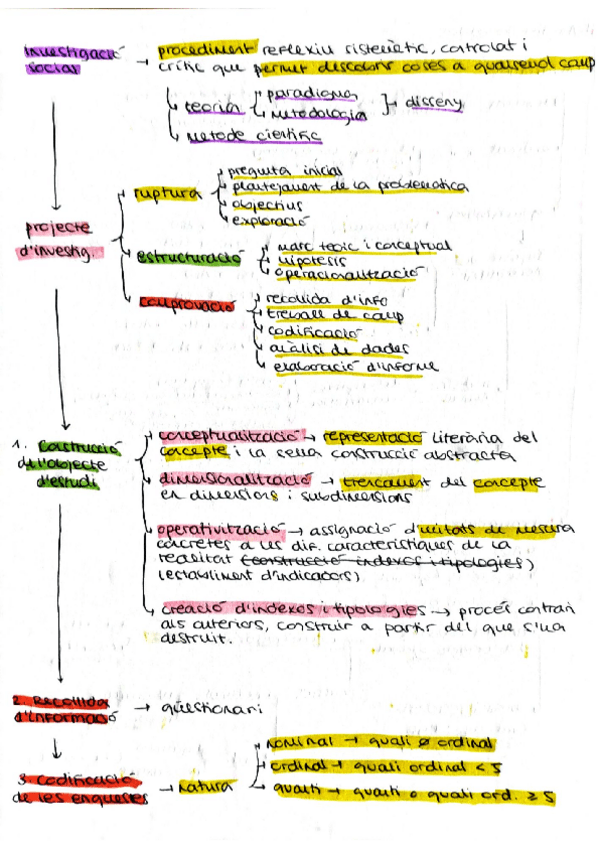 investigació → procediment reflexiu sistemàtic, controlat i
social crític que permet descobrir coses a qualsevol camp
↳ teoria paradigma
metodologia } disseny
↳ mètode científic
ruptura pregunta inicial
plantejament de la problemàtica
objectius
exploració
projecte
d'investig.
estructuració marc teòric i conceptual
hipòtesis
operacionalització
comprovació recollida d'info
treball de camp
codificació
anàlisi de dades
elaboració d'informe
1. Construcció
de l'objecte
d'estudi
conceptualització → representació literària del
concepte i la seva construcció abstracta
dimensionalització → trencament del concepte
en dimensions i subdimensions
operativització → assignació d'unitats de mesura
concretes a les dif. característiques de la
realitat (construcció índexos i tipologies)
(establiment d'indicadors)
creació d'índexos i tipologies → procés contrari
als anteriors, construir a partir del que s'ha
destruït.
2. Recollida
d'informació → qüestionari
3. Codificació
de les enquestes → natura
nominal → quali ø ordinal
ordinal → quali ordinal < 5
quanti → quanti o quali ord. ≥ 5